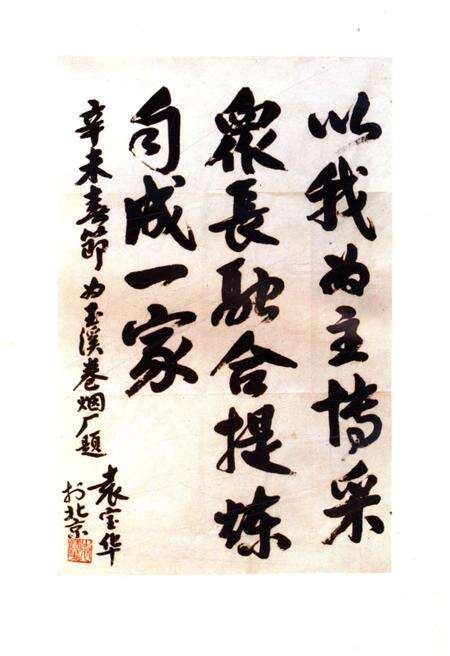 以我为主博采
眾長融合提炼
自成一家
辛未春節为玉溪卷烟厂题
袁宝华
於北京